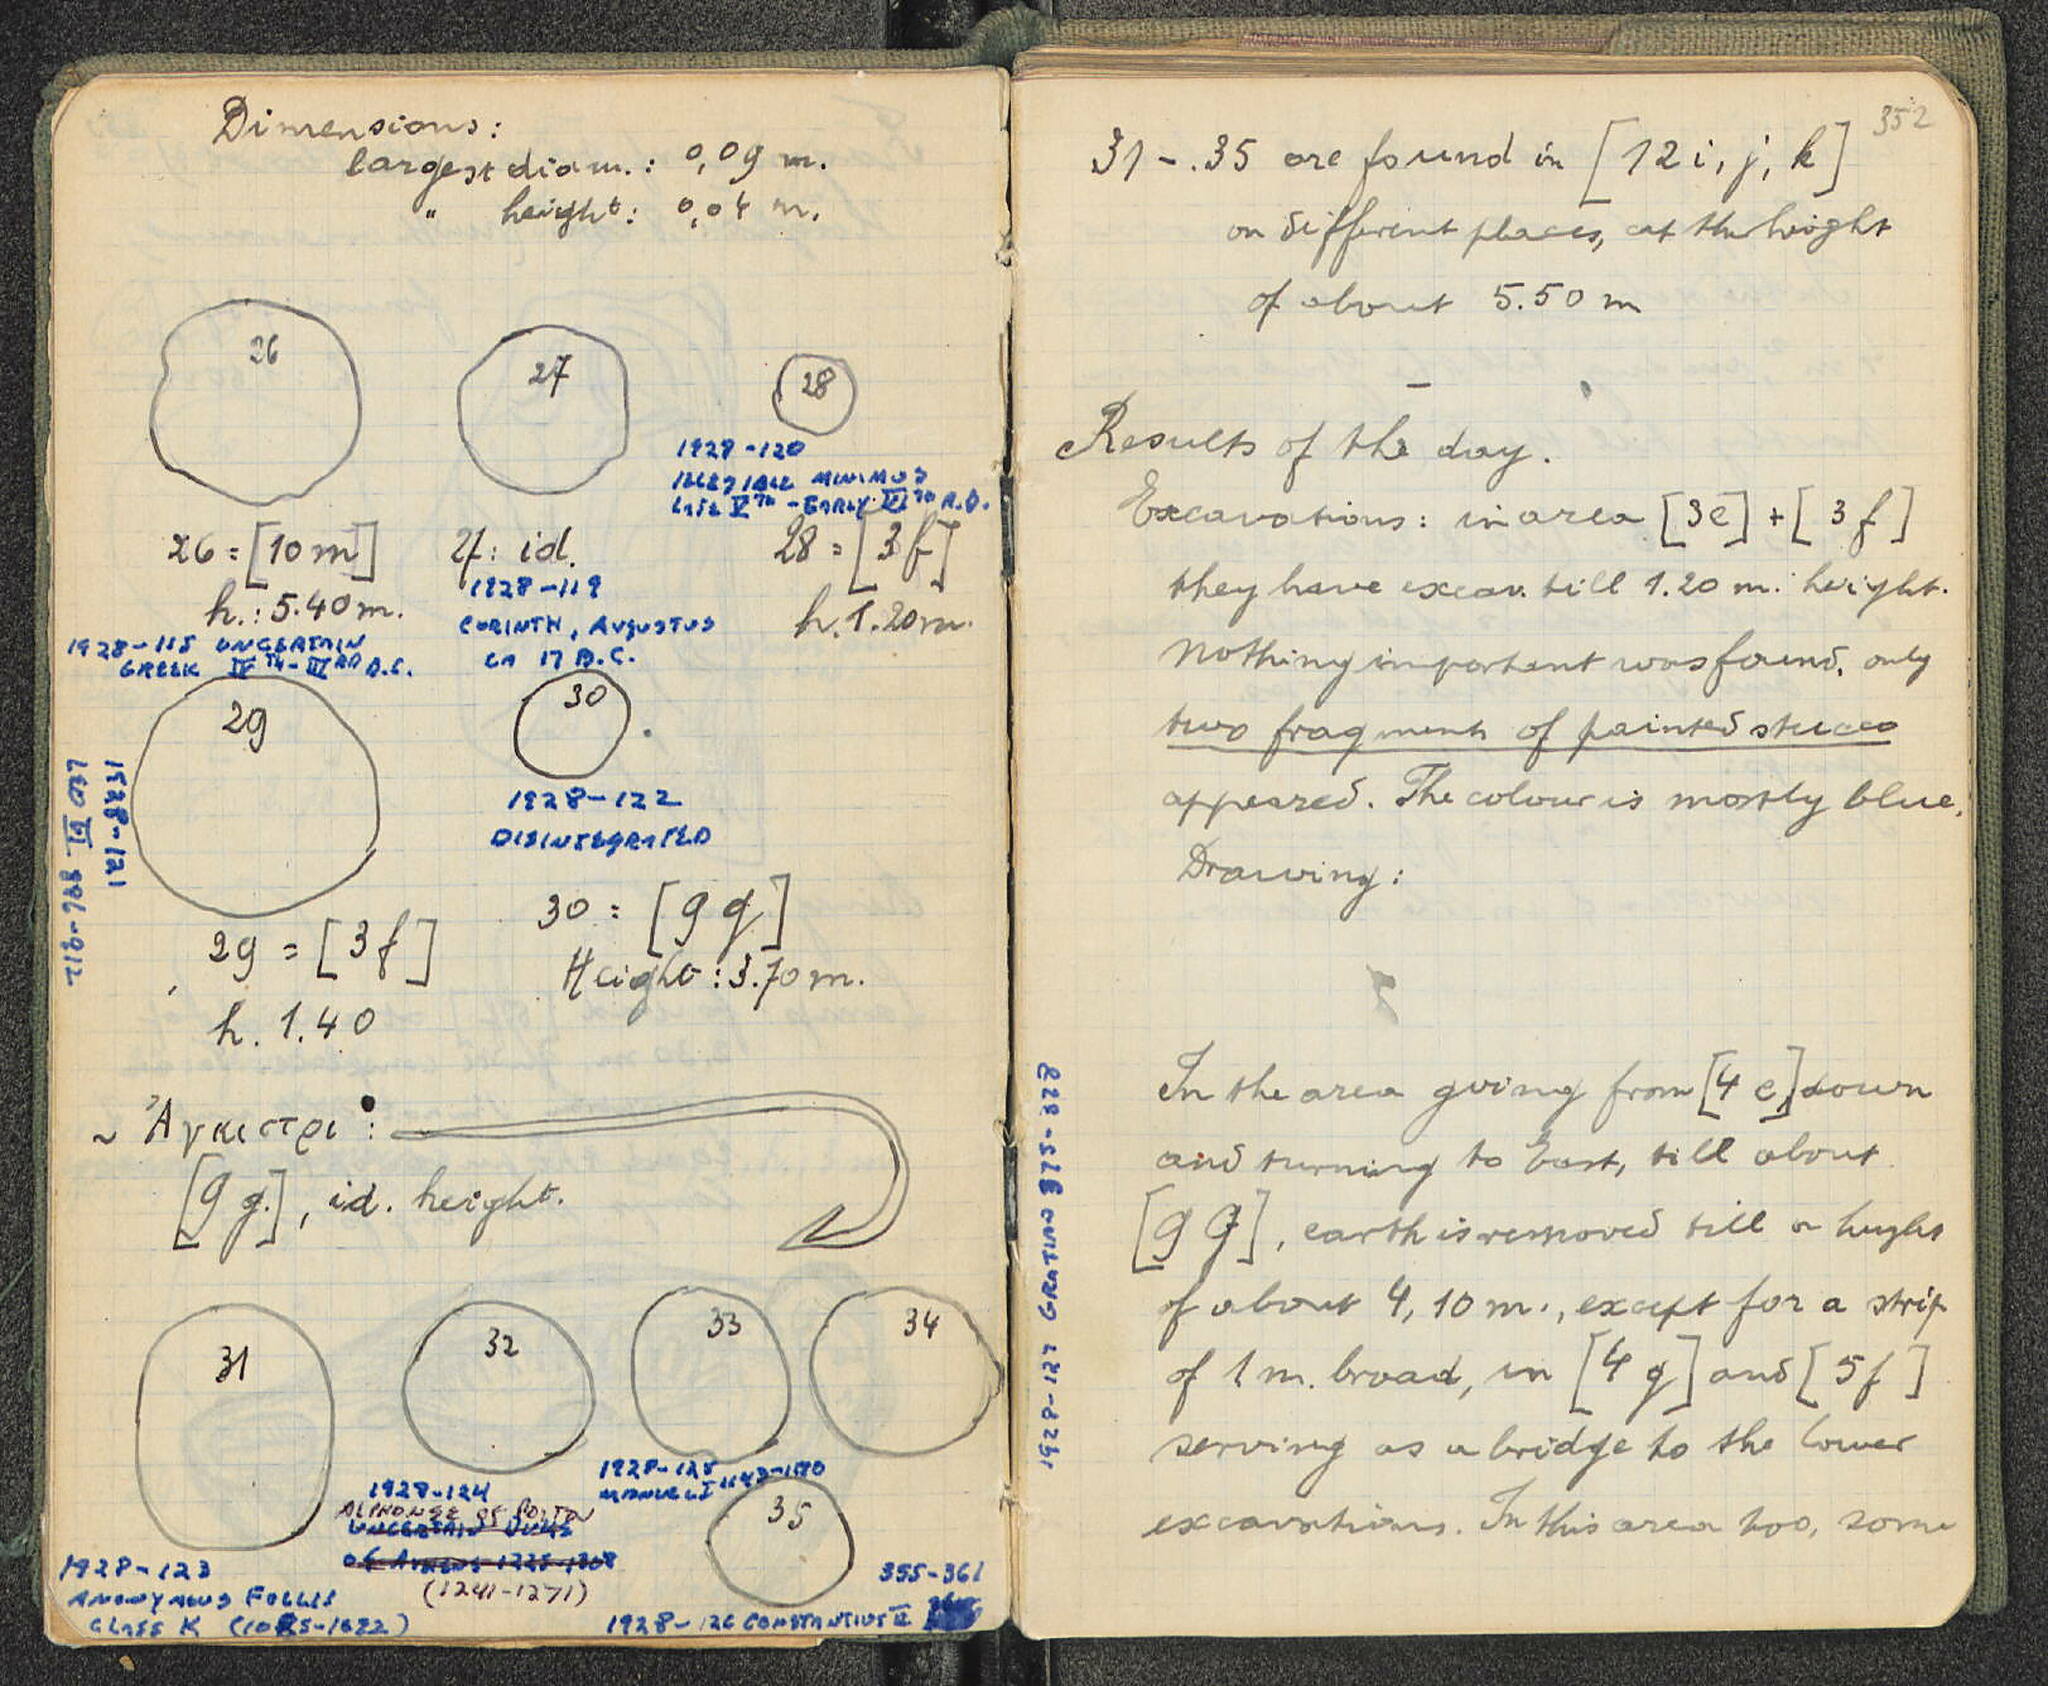 Dimensions:
largest diam.: 0,09 m.
" height: 0,04 m.
26
27
28
1928-120
ILLEGIBLE MINIMUS
LATE V TH - EARLY VI TH A.D.
26 = [10 m]
27: id.
28 = [3 f]
h.: 5.40 m.
1928-119
CORINTH, AUGUSTUS
CA 17 B.C.
h. 1.20 m.
1928-118 UNCERTAIN
GREEK IV TH - III RD B.C.
29
30
1928-121
LEO VI 886-912
1928-122
DISINTEGRATED
29 = [3 f]
h. 1.40
30 = [9 g]
Height: 3.70 m.
~ Ἀγκιστρι:
[9 g], id. height.
31
32
33
34
1928-124
ALPHONSE OF POITOU
UNCERTAIN DUKE
OF ATHENS 1225-1308
(1241-1271)
1928-125
MANUEL I 1143-1180
35
1928-123
ANONYMOUS FOLLIS
CLASS K (1085-1092)
355-361
1928-126 CONSTANTIUS II
352
31 - 35 are found in [12 i, j, k]
on different places, at the height
of about 5.50 m
Results of the day.
Excavations: in area [3e] + [3f]
they have excav. till 1.20 m. height.
Nothing important was found, only
two fragments of painted stucco
appeared. The colour is mostly blue.
Drawing:
1928-127 GRATIAN 375-378
In the area going from [4 e] down
and turning to East, till about
[9 g], earth is removed till a height
of about 4,10 m., except for a strip
of 1 m. broad, in [4 g] and [5 f]
serving as a bridge to the lower
excavations. In this area too, some